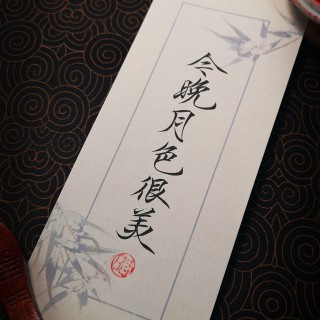 今晚月色很美